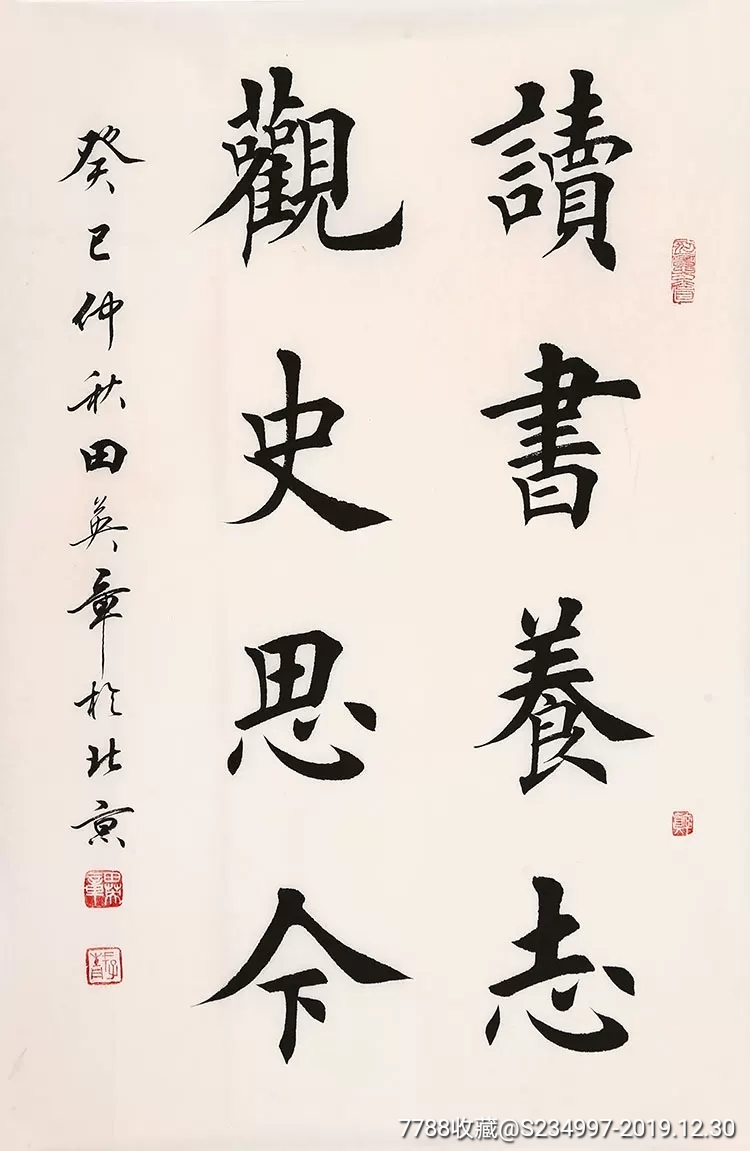 讀書養志
觀史思今
癸巳仲秋田英章於北京
田英章
7788收藏@S234997-2019.12.30